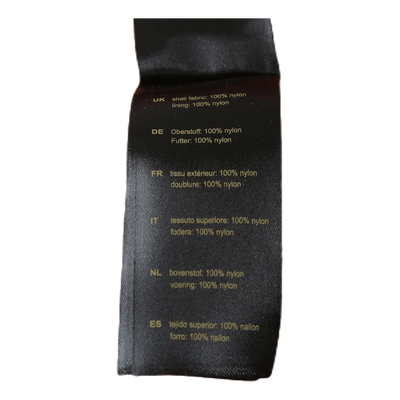 UK shell fabric: 100% nylon
lining: 100% nylon
DE Oberstoff: 100% nylon
Futter: 100% nylon
FR tissu extérieur: 100% nylon
doublure: 100% nylon
IT tessuto superiore: 100% nylon
fodera: 100% nylon
NL bovenstof: 100% nylon
voering: 100% nylon
ES tejido superior: 100% nailon
forro: 100% nailon